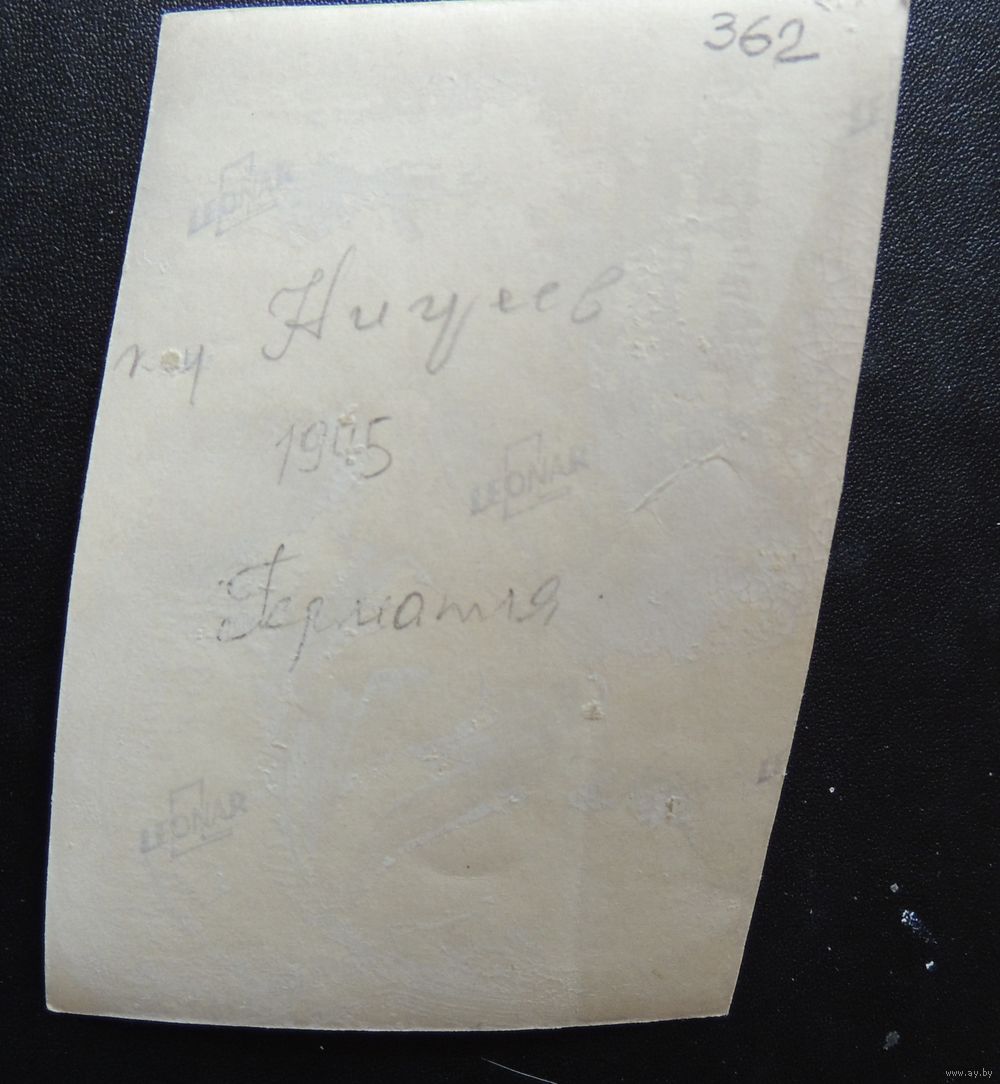 362
LEONAR
Ницеев
1945
LEONAR
Германия.
LEONAR
www.ay.by